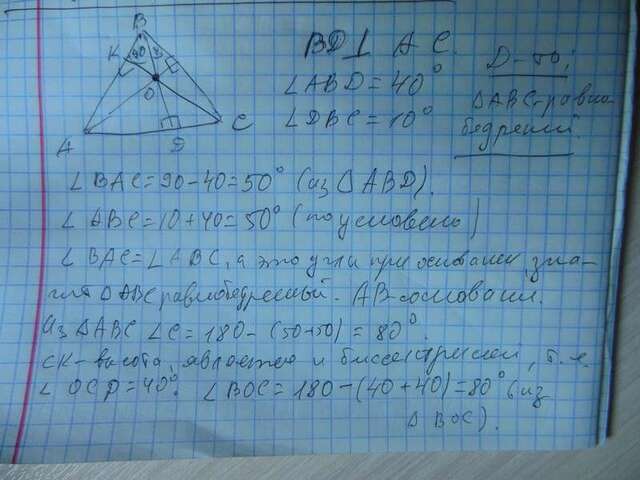 B
K
40
O
A
D
C
BD ⊥ AC.
∠ABD = 40°
∠DBC = 10°
D-ть:
△ABC-равно-
бедренный.
∠BAC = 90-40 = 50° (из △ABD).
∠ABC = 10+40 = 50° (по условию)
∠BAC = ∠ABC, а это углы при основании, зна-
△ABC равнобедренный. AB-основани.
Из △ABC ∠C = 180 - (50+50) = 80°.
CK-высота, является и биссектрисой, т.е.
∠OCD = 40°. ∠BOC = 180 - (40+40) = 80° (из
△BOC).